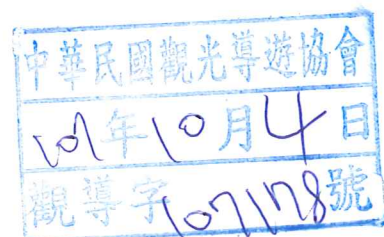 中華民國觀光導遊協會
107年10月4日
觀導字107178號